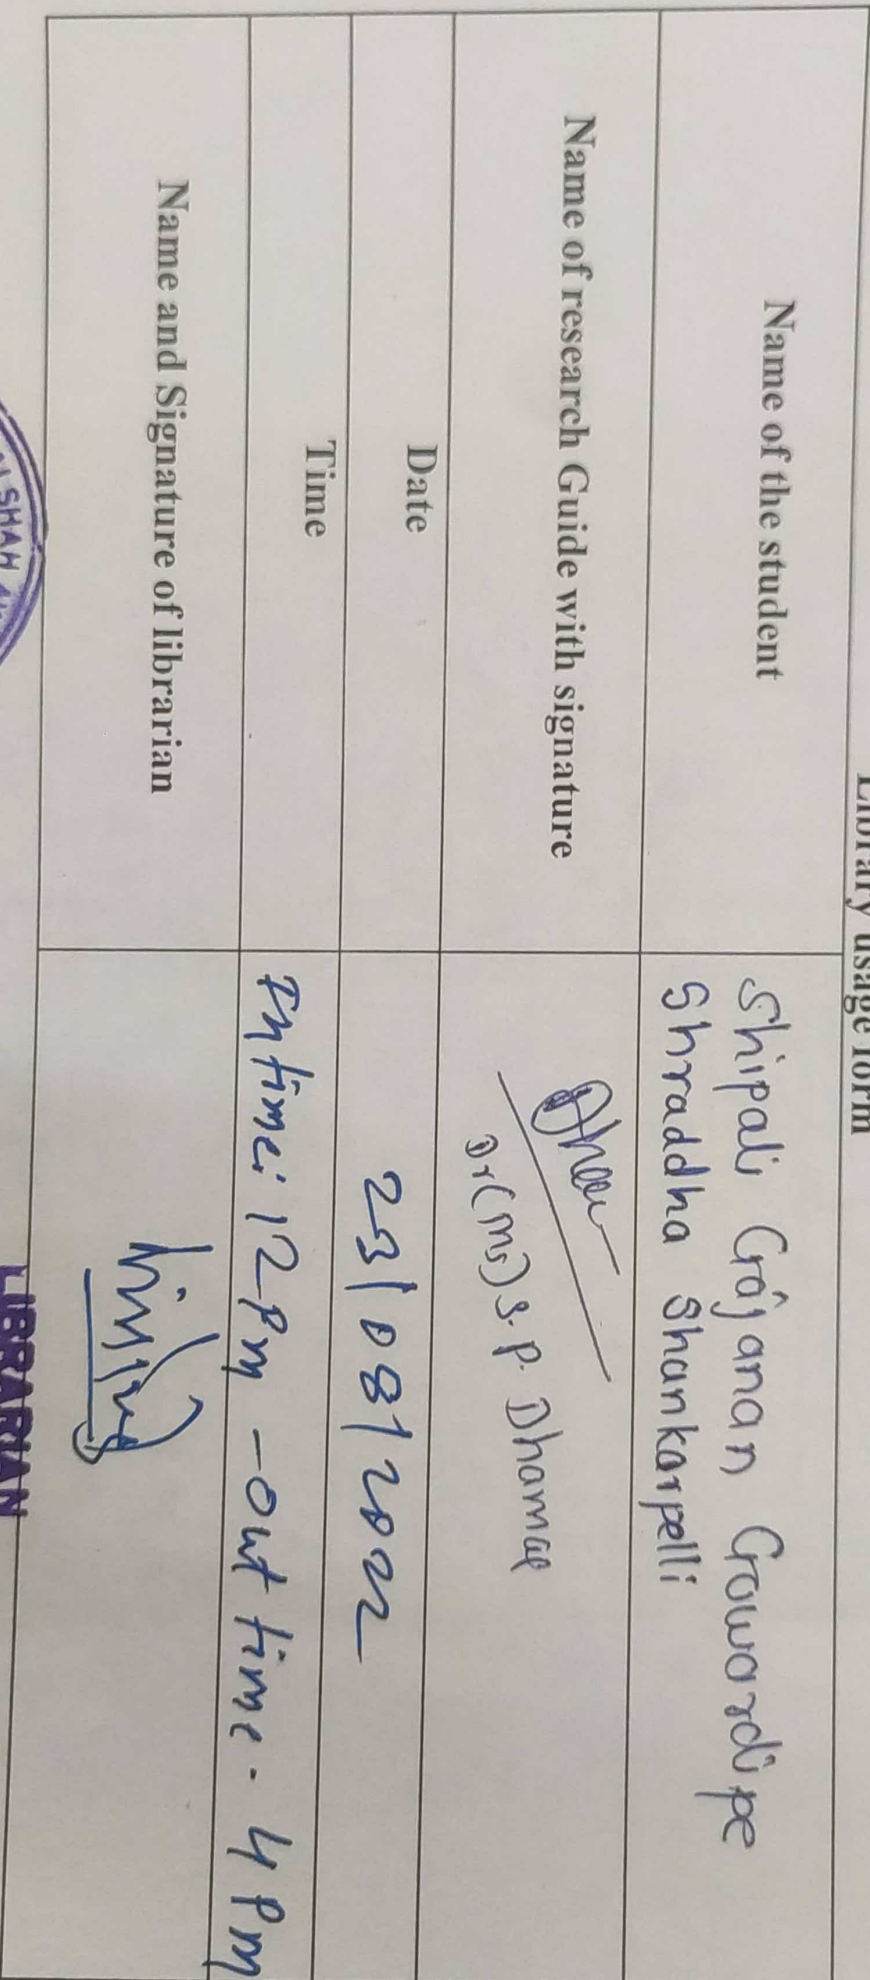 Library usage form
Name of the student
Shipali Gajanan Gowardipe
Shraddha Shankarpelli
Name of research Guide with signature
Dr(Ms) S.P. Dhamae
Date
23/08/2022
Time
In time: 12 Pm - Out time - 4 Pm
Name and Signature of librarian
SHAH
LIBRARIAN